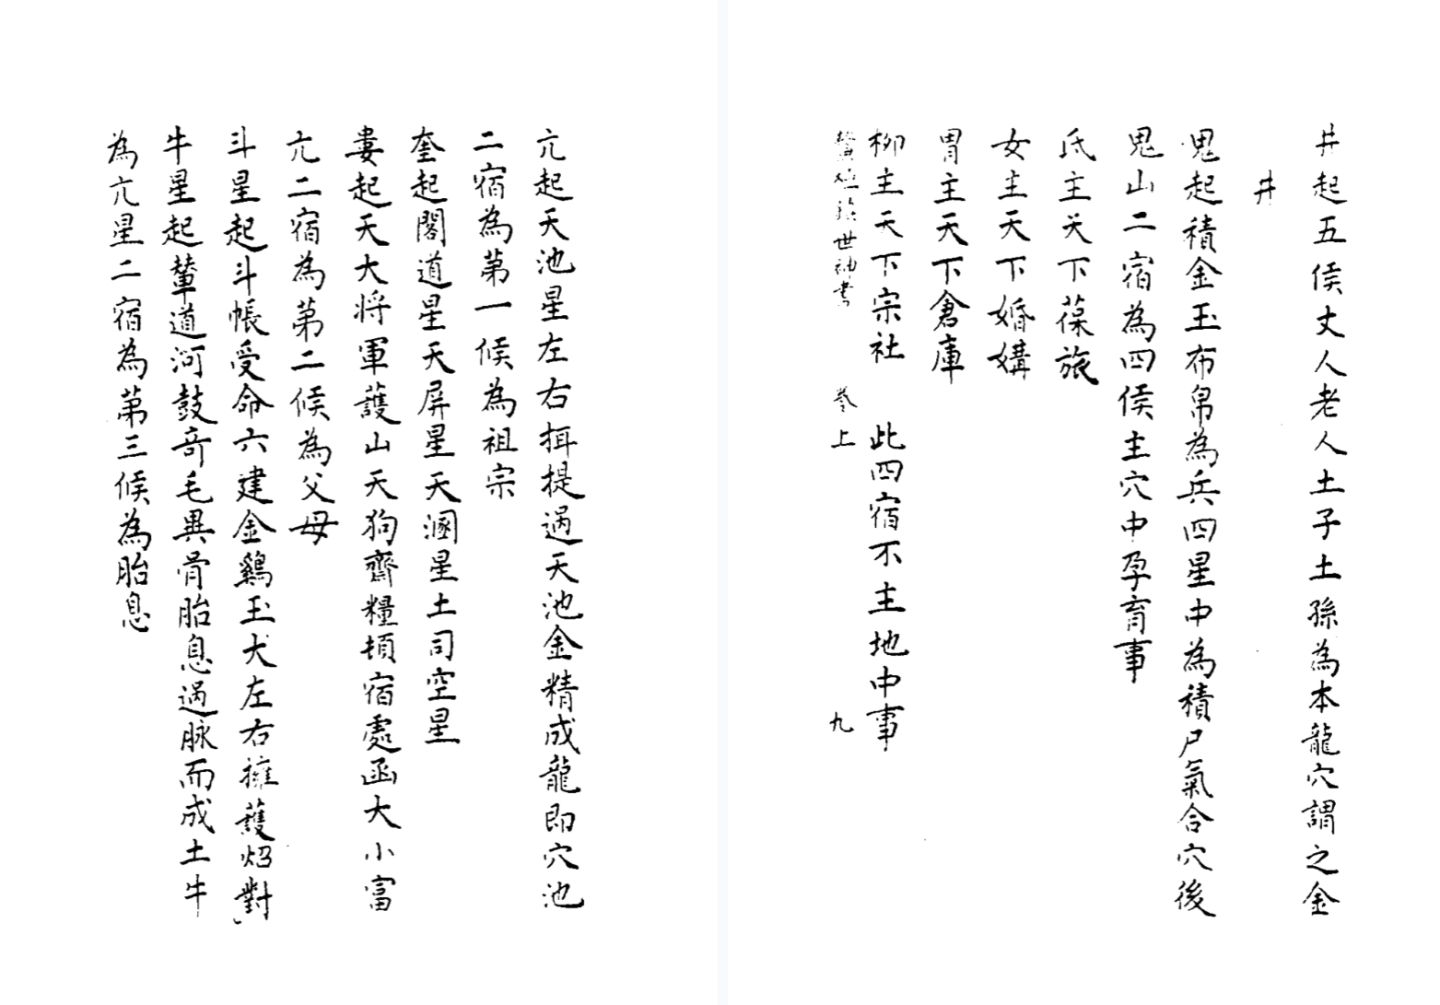 井起五侯丈人老人土子土孫為本龍穴謂之金
井
鬼起積金玉布帛為兵四星中為積尸氣合穴後
鬼山二宿為四侯主穴中孕育事
氐主天下葆旅
女主天下婚媾
胃主天下倉庫
柳主天下宗社 此四宿不主地中事
世神書 卷上 九
亢起天池星左右揖提過天池金精成龍即穴池
二宿為第一候為祖宗
奎起閣道星天屏星天溷星土司空星
婁起天大將軍護山天狗齊糧頓宿處函大小富
亢二宿為第二候為父母
斗星起斗帳受命六建金鷄玉犬左右擁護炤對
牛星起輦道河鼓奇毛異骨胎息過脉而成土牛
為亢星二宿為第三候為胎息